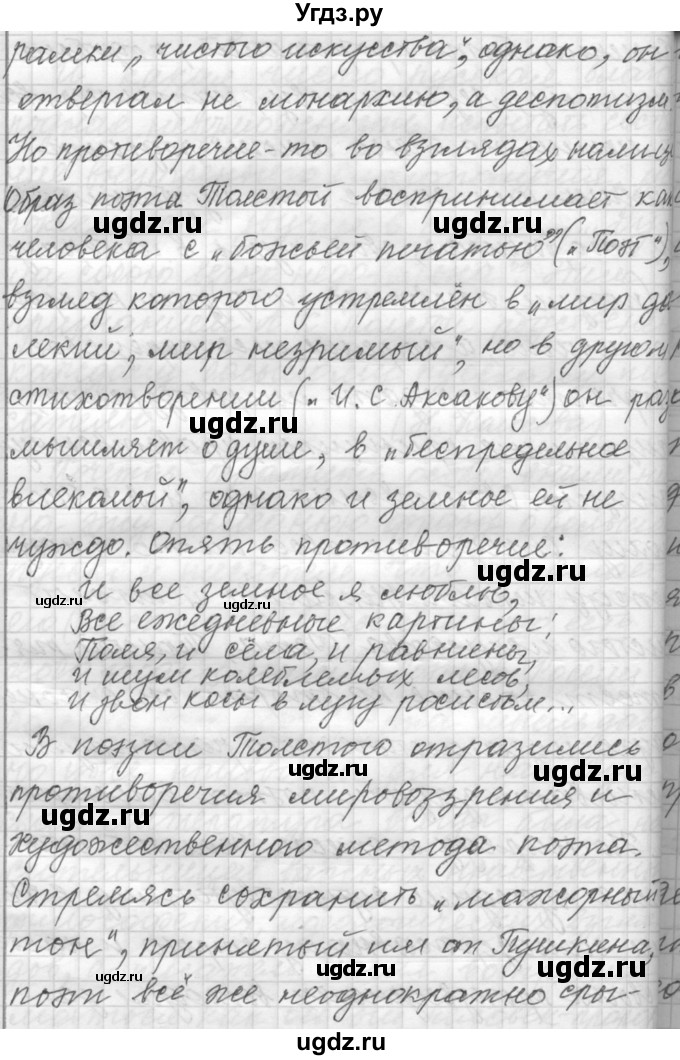 Угдз.ру
рамки „чистого искусства“, однако, он
отвергал не монархию, а деспотизм.
Но противоречие-то во взглядах налицо
Образ поэта Толстой воспринимает как
человека с „божьей печатью“ („Поэт“),
взгляд которого устремлён в „мир да-
лекий, мир незримый“, но в другом
стихотворении („И. С. Аксакову“) он раз-
ugdz.ru
мышляет о душе, в „беспредельное
влекомой“, однако и земное ей не
чуждо. Опять противоречие:
И все земное я люблю,
Все ежедневные картины:
Поля, и сёла, и равнины,
И шум колеблемых лесов,
И звон косы в лугу росистом...
В поэзии Толстого отразились
противоречия мировоззрения и
художественного метода поэта.
Стремясь сохранить „мажорный
тон“, принятый им от Пушкина,
поэт всё же неоднократно сры-